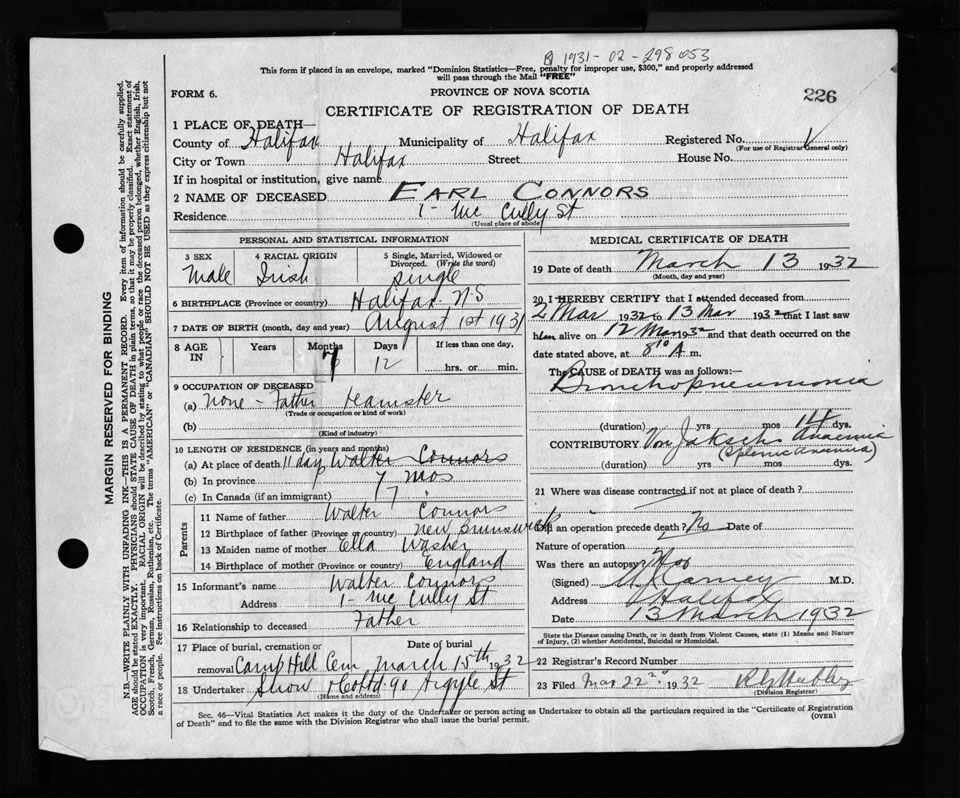 B 1931-02-298053
This form if placed in an envelope, marked "Dominion Statistics—Free, penalty for improper use, $300," and properly addressed
will pass through the Mail "FREE"
FORM 6.
PROVINCE OF NOVA SCOTIA
226
CERTIFICATE OF REGISTRATION OF DEATH
1 PLACE OF DEATH—
County of Halifax Municipality of Halifax Registered No.
(For use of Registrar General only)
City or Town Halifax Street House No.
If in hospital or institution, give name
2 NAME OF DECEASED EARL CONNORS
Residence 1- Mc Cully St
(Usual place of abode)
PERSONAL AND STATISTICAL INFORMATION
3 SEX 4 RACIAL ORIGIN 5 Single, Married, Widowed or Divorced. (Write the word)
Male Irish Single
6 BIRTHPLACE (Province or country) Halifax N.S
7 DATE OF BIRTH (month, day and year) August 1st 1931
8 AGE IN Years Months Days If less than one day,
7 12 hrs. or min.
9 OCCUPATION OF DECEASED
(a) None - Father Teamster
(Trade or occupation or kind of work)
(b)
(Kind of industry)
10 LENGTH OF RESIDENCE (in years and months)
(a) At place of death 11 day Walter Connors
(b) In province 7 mos
(c) In Canada (if an immigrant) 7 "
Parents
11 Name of father Walter Connors
12 Birthplace of father (Province or country) New Brunswick
13 Maiden name of mother Ella Washer
14 Birthplace of mother (Province or country) England
15 Informant's name Walter Connors
Address 1- Mc Cully St
16 Relationship to deceased Father
17 Place of burial, cremation or removal Date of burial
Camp Hill Cem March 15th 1932
18 Undertaker Snow & Co Ltd 90 Argyle St
(Name and address)
MEDICAL CERTIFICATE OF DEATH
19 Date of death March 13 1932
(Month, day and year)
20 I HEREBY CERTIFY that I attended deceased from
2 Mar 1932 to 13 Mar 1932 that I last saw
him alive on 12 Mar 1932 and that death occurred on the
date stated above, at 8 10 A m.
The CAUSE of DEATH was as follows:—
Bronchopneumonia
(duration) yrs mos 14 dys.
CONTRIBUTORY Von Jaksch's Anaemia
(Splenic Anaemia)
(duration) yrs. mos dys.
21 Where was disease contracted if not at place of death?
Did an operation precede death? No Date of
Nature of operation
Was there an autopsy? No
(Signed) Carney M.D.
Address Halifax
Date 13 March 1932
State the Disease causing Death, or in death from Violent Causes, state (1) Means and Nature
of Injury, (2) whether Accidental, Suicidal or Homicidal.
22 Registrar's Record Number
23 Filed Mar 22nd 1932
(Division Registrar)
Sec. 46—Vital Statistics Act makes it the duty of the Undertaker or person acting as Undertaker to obtain all the particulars required in the "Certificate of Registration
of Death" and to file the same with the Division Registrar who shall issue the burial permit.
(OVER)
MARGIN RESERVED FOR BINDING
N.B.—WRITE PLAINLY WITH UNFADING INK—THIS IS A PERMANENT RECORD. Every item of information should be carefully supplied.
AGE should be stated EXACTLY. PHYSICIANS should STATE CAUSE OF DEATH in plain terms, so that it may be properly classified. Exact statement of
OCCUPATION is very important. RACIAL ORIGIN will be described by stating to what people or race the deceased person belonged, whether English, Irish,
Scotch, French, German, Russian, Ruthenian, etc. The terms "AMERICAN" or "CANADIAN" SHOULD NOT BE USED as they express citizenship but not
a race or people. See instructions on back of Certificate.